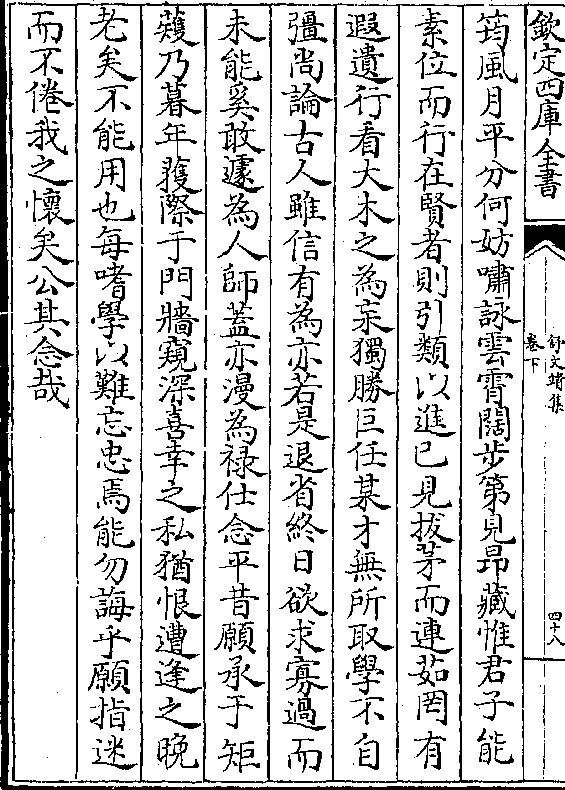 欽定四庫全書
舒文靖集
卷下
四十八
筠風月平分何妨嘯詠雲霄闊步第見昂藏惟君子能
素位而行在賢者則引類以進已見拔茅而連茹罔有
遐遺行看大木之為杗獨勝巨任某才無所取學不自
彊尚論古人雖信有為亦若是退省終日欲求寡過而
未能奚敢遽為人師蓋亦漫為祿仕念平昔願承于矩
矱乃暮年獲際于門牆窺深喜幸之私猶恨遭逢之晚
老矣不能用也每嗜學以難忘忠焉能勿誨乎願指迷
而不倦我之懷矣公其念哉